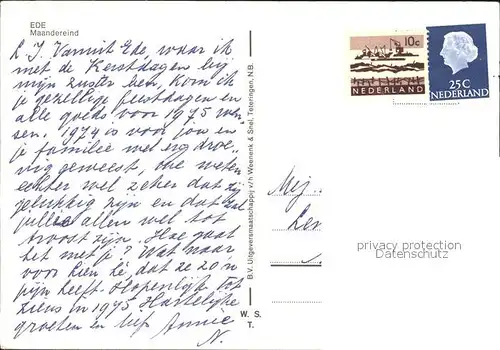 EDE
Maandereind
L I. Vanuit Ede, waar ik
met de Kerstdagen bij
mijn zuster ben, kom ik
je gezellige feestdagen en
alle goeds voor 1975 wen
sen. 1974 is voor jou en
je familie wel erg droe„
vig geweest, we weten
echter wel zeker dat zij
gelukkig zijn en dat zal
jullie allen wel tot
troost zijn. Hoe gaat
het met je? Wat naar
voor hé, dat ze zo'n
pijn heeft. Hopenlijk tot
ziens in 1975 Hartelijke
groeten en lief Annie
N.
B.V. Uitgeversmaatschappij v/h Weenenk & Snel, Teteringen, N.B.
W. S.
T.
10c
NEDERLAND
25 C
NEDERLAND
Mej.
privacy protection
Datenschutz